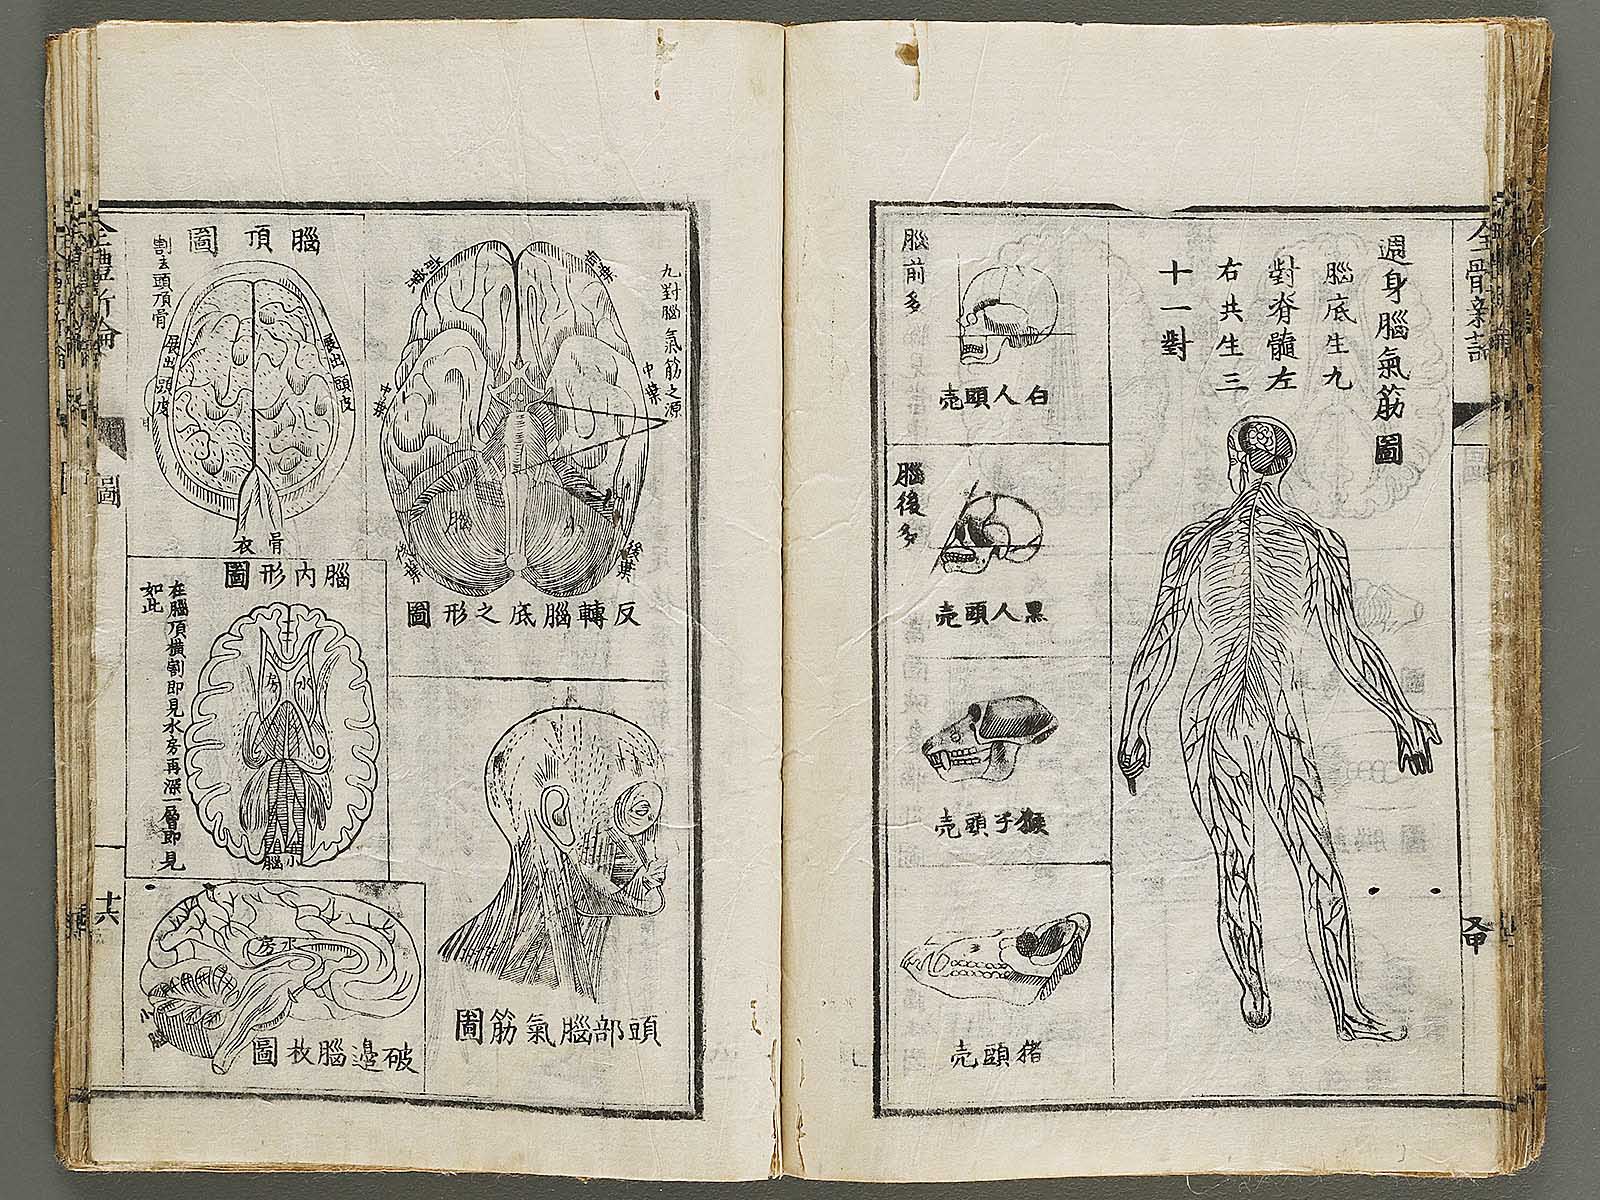 週身腦氣筋圖
腦底生九
對脊髓左
右共生三
十一對
腦前多
白人頭壳
腦後多
黑人頭壳
猴子頭壳
猪頭壳
九對腦氣筋之源
前葉
前葉
中葉
中葉
小
腦
後葉
後葉
反轉腦底之形圖
腦頂圖
割去頭頂骨
展出頭皮
展出頭皮
骨衣
腦內形圖
在腦頂橫割即見水房再深一層即見
如此
水房
小腦
頭部腦氣筋圖
水房
小腦
破邊腦枚圖
全體新論
圖
十六